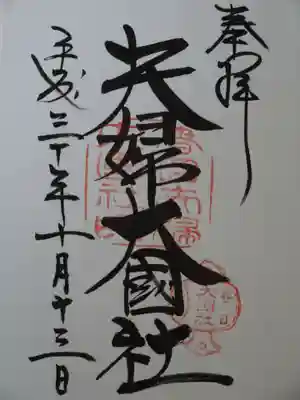 奉拝
夫婦大國社
平成三十年十月十三日